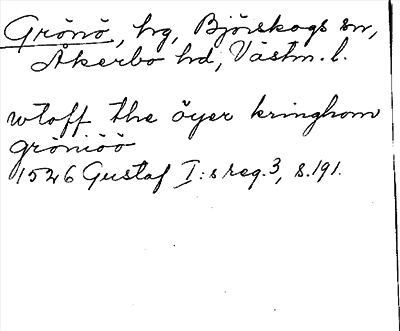 Grönö, hg, Björskogs sn,
Åkerbo hd, Västm. l.
wtoff the öyer kringhom
gröniöö
1526 Gustaf I:s reg. 3, s. 191.